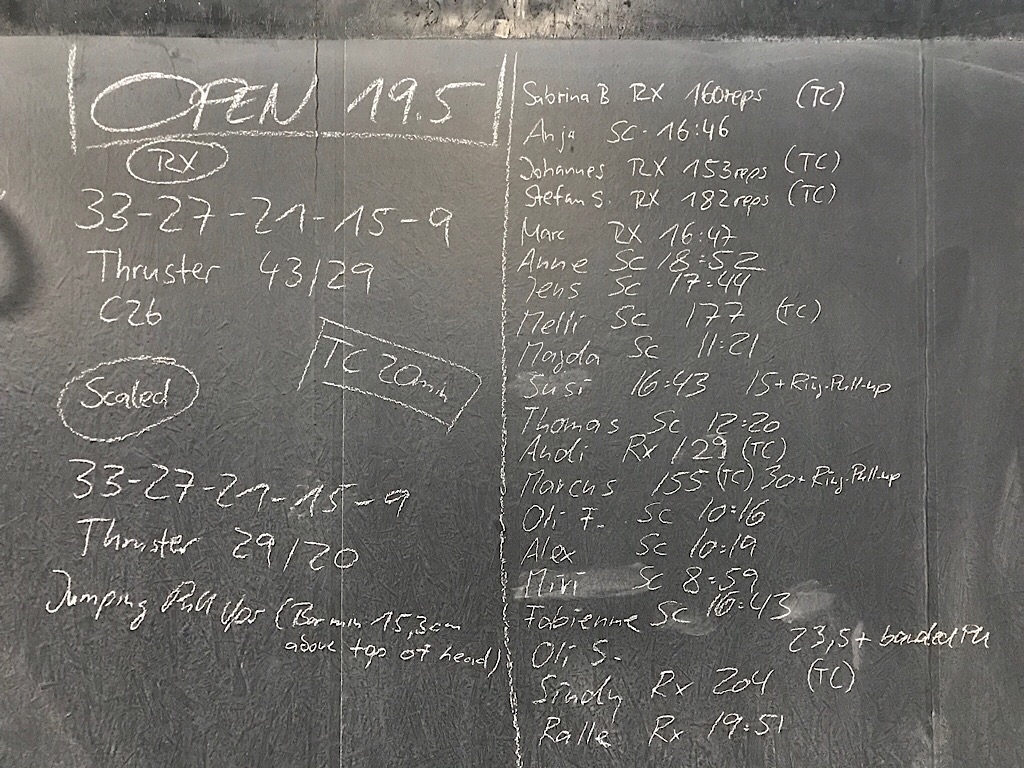 OPEN 19.5
RX
33-27-21-15-9
Thruster 43/29
C2B
TC 20min
Scaled
33-27-21-15-9
Thruster 29/20
Jumping Pull Ups (Bar min 15,3cm
above top of head)
Sabrina B RX 160reps (TC)
Anja Sc. 16:46
Johannes RX 153reps (TC)
Stefan S. RX 182reps (TC)
Marc RX 16:47
Anne Sc 18:52
Jens Sc 17:44
Melli Sc 177 (TC)
Magda Sc 11:21
Susi 16:43 15+Ring-Pull-up
Thomas Sc 12:20
Andi Rx 129 (TC)
Marcus 155 (TC) 30+Ring-Pull-up
Oli F. Sc 10:16
Alex Sc 10:19
Miri Sc 8:59
Fabienne Sc 16:43
Oli S. 23,5+ banded PU
Sindy Rx 204 (TC)
Ralle Rx 19:51